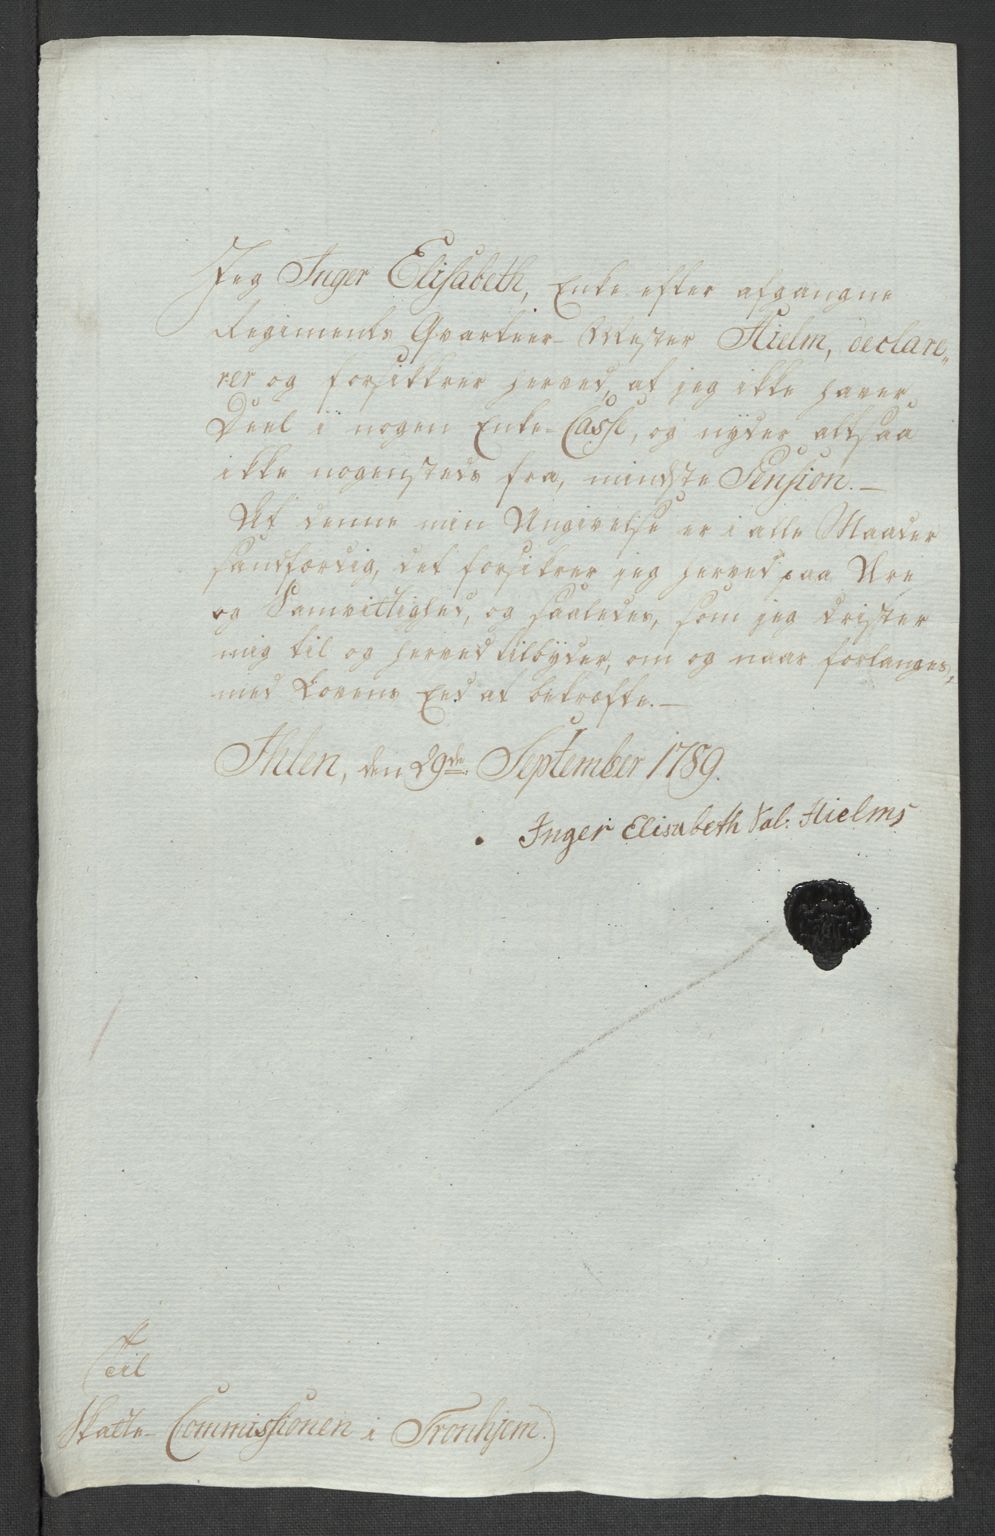 Jeg Inger Elisabeth, Enke efter afgangne
Regiments Qvarteer-Mester Hielm, declare-
rer og forsikkrer herved, at jeg ikke haver
Deel i nogen Enke-Casse, og nyder altsaa
ikke nogensteds fra, mindste Pension.—
At denne min Angivelse er i alle Maader
sandfærdig, det forsikrer jeg herved paa Ære
og Samvittighed, og saaledes, som jeg drister
mig til og herved tilbyder, om og naar forlanges,
med Lovens Eed at bekræfte.—
Ihlen, den 29de September 1789.
Inger Elisabeth Sal: Hielms
Til
Skatte-Commissionen i Tronhjem.